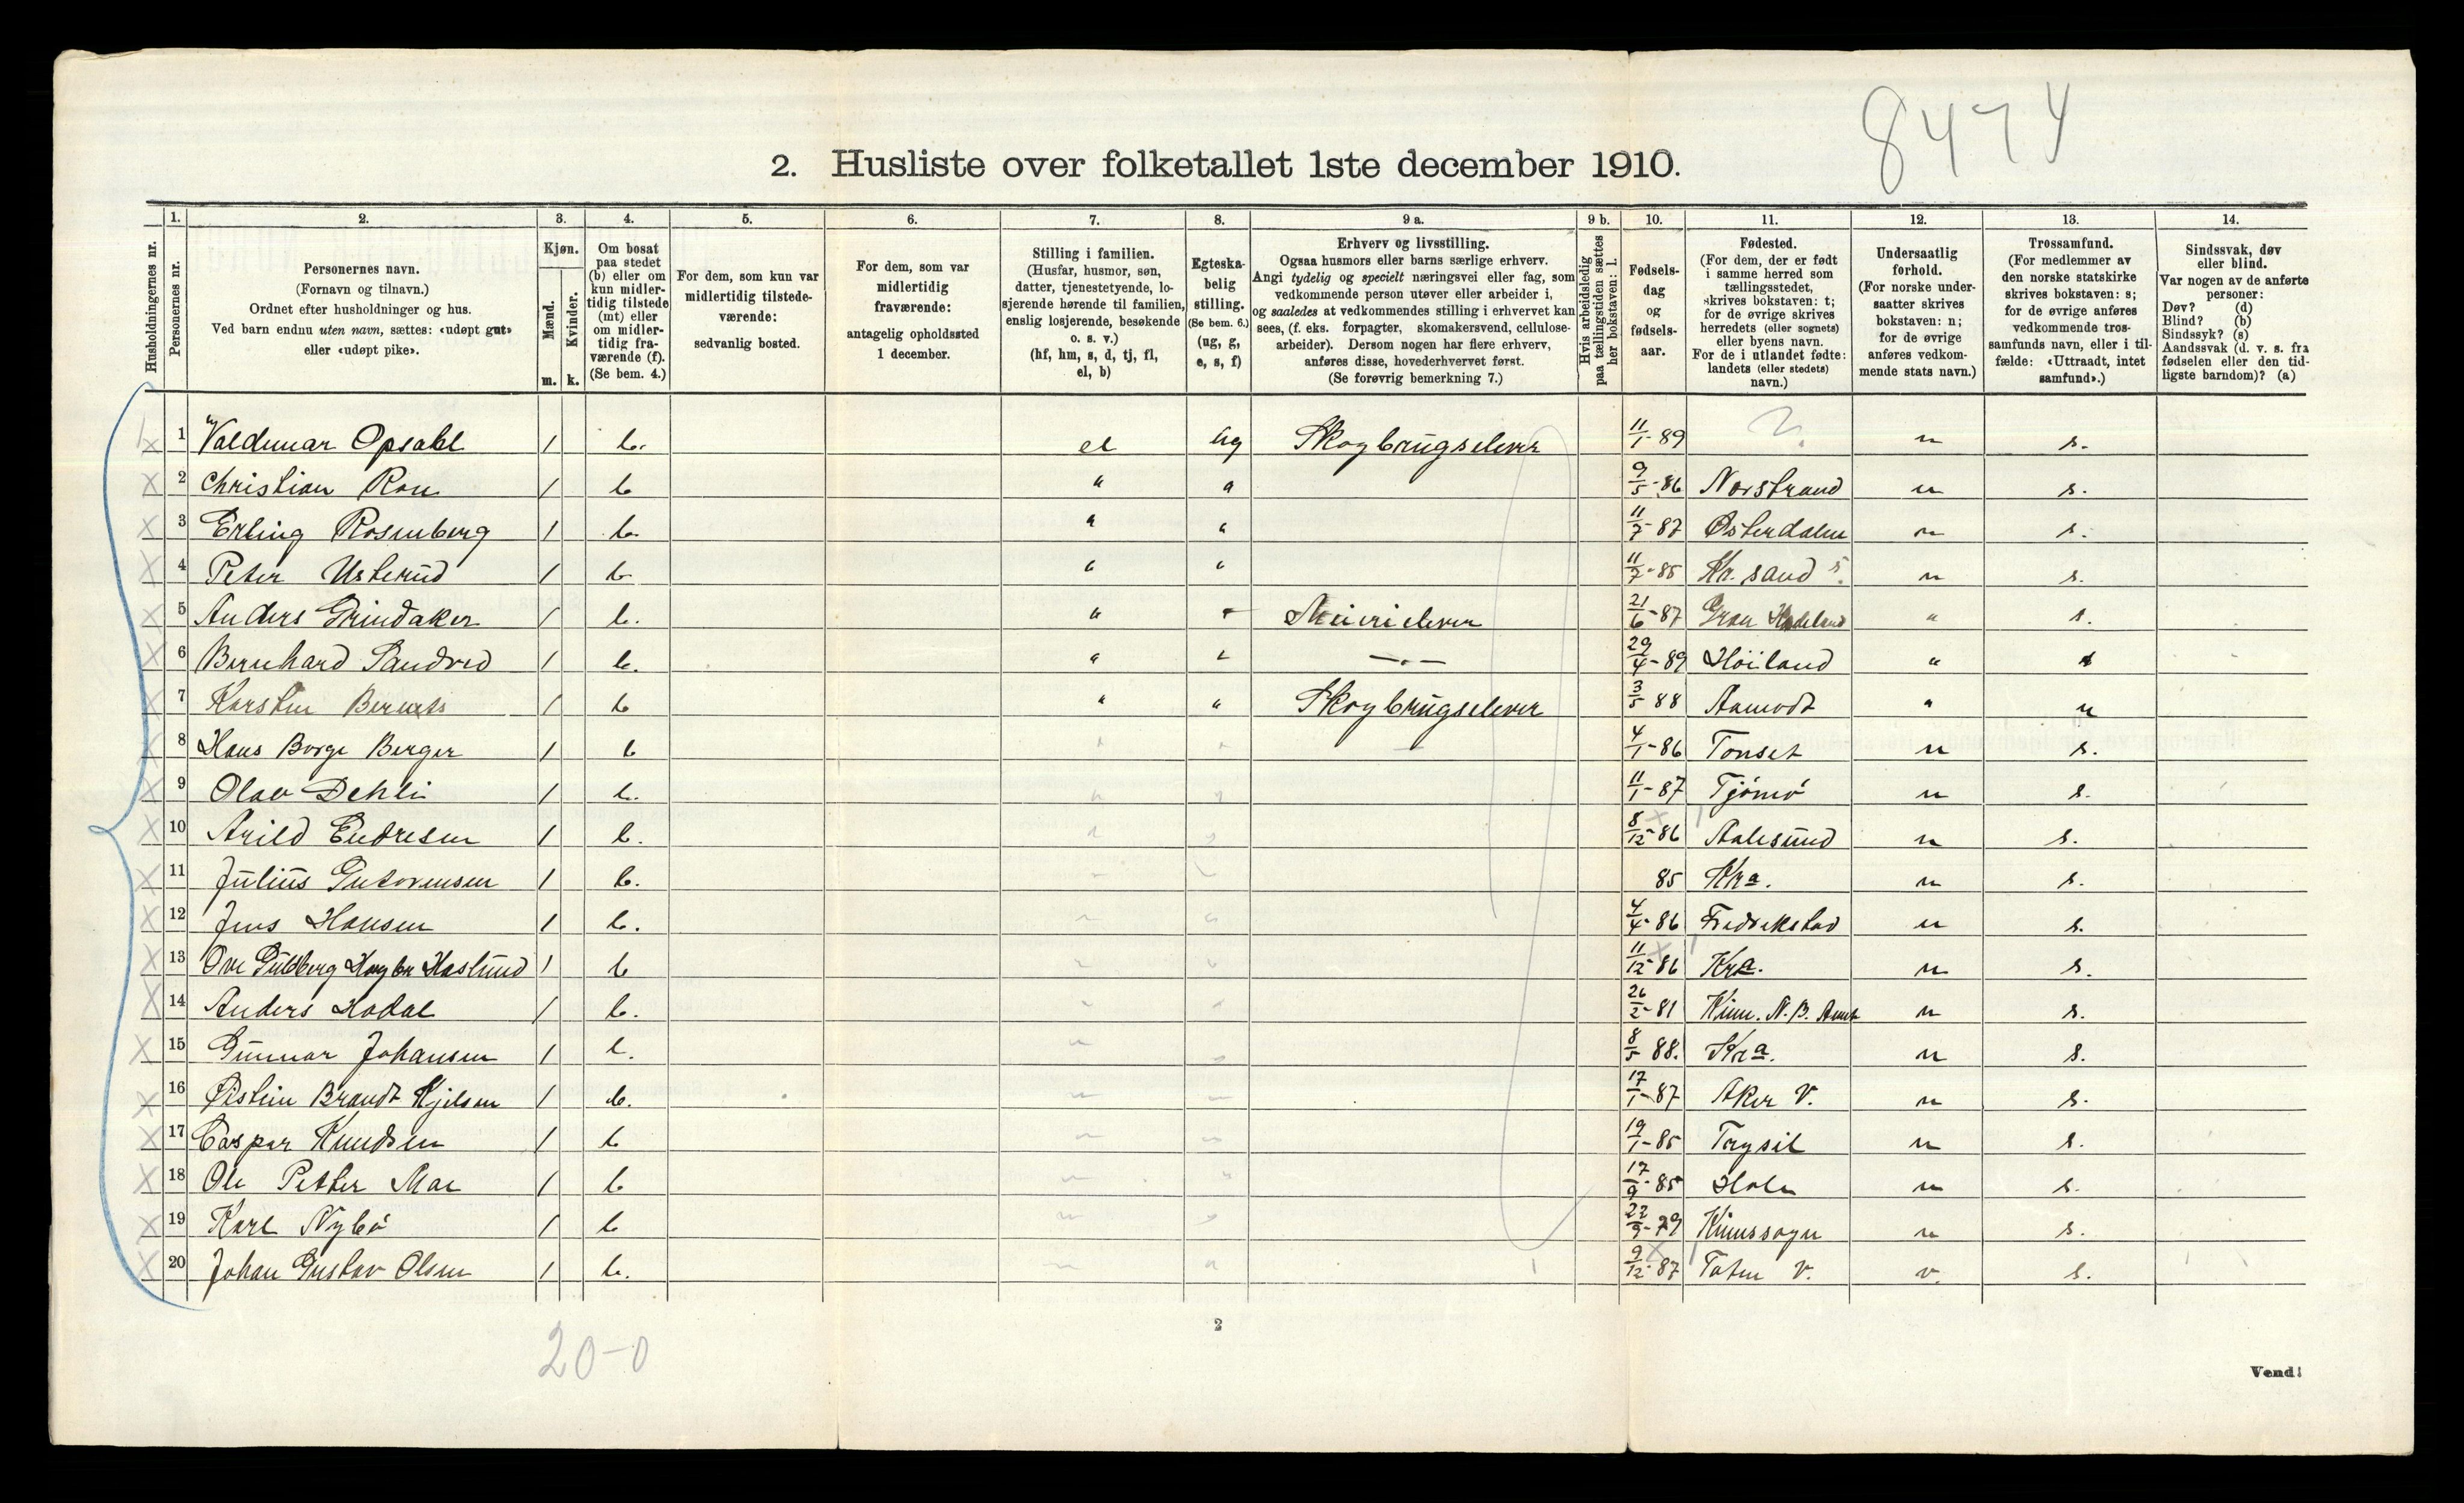 8474
2. Husliste over folketallet 1ste december 1910.
Husholdningernes nr.
1. Personernes nr.
2. Personernes navn.
(Fornavn og tilnavn.)
Ordnet efter husholdninger og hus.
Ved barn endnu uten navn, sættes: «udøpt gut»
eller «udøpt pike».
3. Kjøn.
Mænd. m.
Kvinder. k.
4. Om bosat
paa stedet
(b) eller om
kun midler-
tidig tilstede
(mt) eller
om midler-
tidig fra-
værende (f).
(Se bem. 4.)
5. For dem, som kun var
midlertidig tilstede-
værende:
sedvanlig bosted.
6. For dem, som var
midlertidig
fraværende:
antagelig opholdssted
1 december.
7. Stilling i familien.
(Husfar, husmor, søn,
datter, tjenestetyende, lo-
sjerende hørende til familien,
enslig losjerende, besøkende
o. s. v.)
(hf, hm, s, d, tj, fl,
el, b)
8. Egteska-
belig
stilling.
(Se bem. 6.)
(ug, g,
e, s, f)
9 a. Erhverv og livsstilling.
Ogsaa husmors eller barns særlige erhverv.
Angi tydelig og specielt næringsvei eller fag, som
vedkommende person utøver eller arbeider i,
og saaledes at vedkommendes stilling i erhvervet kan
sees, (f. eks. forpagter, skomakersvend, cellulose-
arbeider). Dersom nogen har flere erhverv,
anføres disse, hovederhvervet først.
(Se forøvrig bemerkning 7.)
9 b. Hvis arbeidsledig
paa tællingstiden sættes
her bokstaven: l.
10. Fødsels-
dag
og
fødsels-
aar.
11. Fødested.
(For dem, der er født
i samme herred som
tællingsstedet,
skrives bokstaven: t;
for de øvrige skrives
herredets (eller sognets)
eller byens navn.
For de i utlandet fødte:
landets (eller stedets)
navn.)
12. Undersaatlig
forhold.
(For norske under-
saatter skrives
bokstaven: n;
for de øvrige
anføres vedkom-
mende stats navn.)
13. Trossamfund.
(For medlemmer av
den norske statskirke
skrives bokstaven: s;
for de øvrige anføres
vedkommende tros-
samfunds navn, eller i til-
fælde: «Uttraadt, intet
samfund».)
14. Sindssvak, døv
eller blind.
Var nogen av de anførte
personer:
Døv? (d)
Blind? (b)
Sindssyk? (s)
Aandssvak (d. v. s. fra
fødselen eller den tid-
ligste barndom)? (a)
1 Valdemar Opsahl 1 b. el ug Skogbrugselever 11/1-89 ? n s.
2 Christian Ron 1 b " " 9/5-86 Norstrand n s.
3 Erling Rosenberg 1 b. " " 11/7-87 Østerdalen n s.
4 Peter Usterud 1 b " " 11/7-85 Kr.sand s. n s.
5 Anders Grindaker 1 b. " " Meierielever 21/6-87 Gran Hadeland " s.
6 Bernhard Sandved 1 b. " " —"— 29/4-89 Höiland " s
7 Karsten 1 b " " Skogbrugselever 3/5 88 Aamodt " n
8 Hans Borge Berger 1 b " " 4/1-86 Tonset n s.
9 Olav Dehli 1 b. " " 11/1-87 Tjömö n s.
10 Arild Endresen 1 b. " " 8/12-86 Aalesund n s.
11 Julius Gutormsen 1 b. " " 85 Kra. n s.
12 Jens Hansen 1 b. " " 4/4-86 Fredrikstad n s.
13 Ove Guldberg Høegh Haslund 1 b " " 11/12-86 Kra. n s.
14 Anders Hodal 1 b. " " 26/2-81 Kinn. N.B. Amt n s.
15 Gunnar Johansen 1 b. " " 8/5 88. Kra. n s.
16 Øistein Brandt Kjelsen 1 b. " " 17/1-87 Aker V. n s.
17 Caspar Knudsen 1 b " " 19/1-85 Trysil n s.
18 Ole Petter Moe 1 b " " 17/9-85 Hole n s.
19 Karl Nybö 1 b " " 22/9-79 Kinnssogn n s.
20 Johan Gustav Olsen 1 b. " " 9/12-87 Toten V. n. s.
20-0
2
Vend!